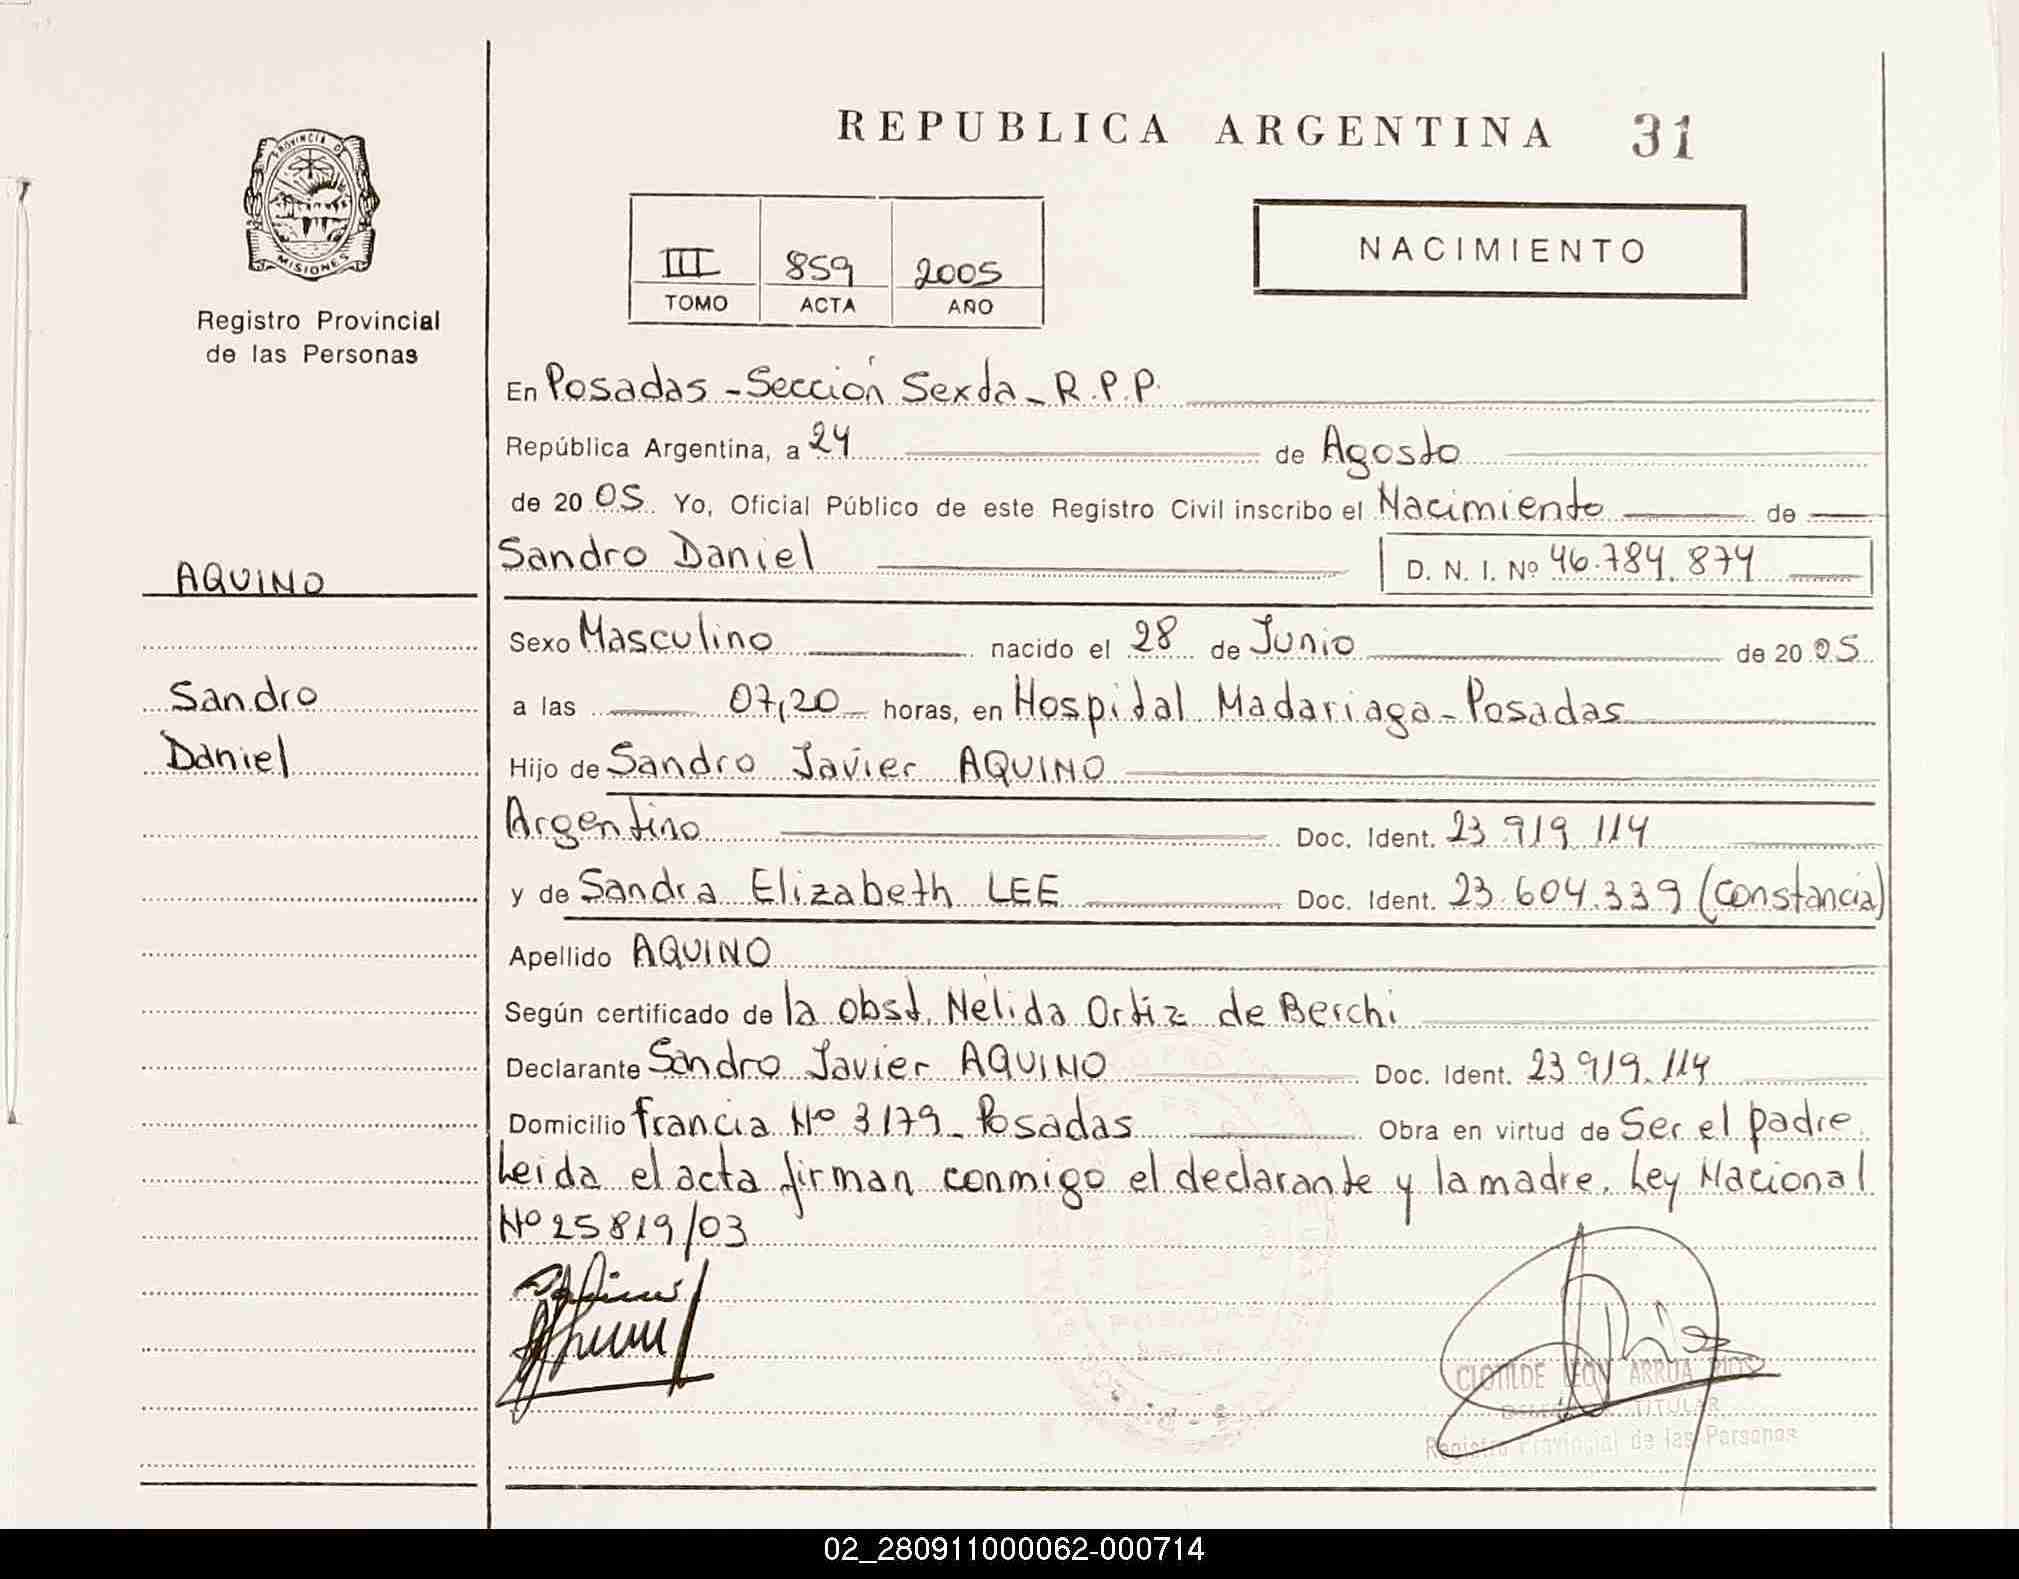 REPUBLICA ARGENTINA 31
PROVINCIA D
MISIONES
Registro Provincial
de las Personas
III 859 2005
TOMO ACTA AÑO
NACIMIENTO
En Posadas - Sección Sexta - R.P.P.
República Argentina, a 24 de Agosto
de 20 05 Yo, Oficial Público de este Registro Civil inscribo el Nacimiento de
Sandro Daniel D. N. I. Nº 46.784.874
AQUINO
Sexo Masculino nacido el 28 de Junio de 20 05
Sandro
a las 07,20 horas, en Hospital Madariaga - Posadas
Daniel
Hijo de Sandro Javier AQUINO
Argentino Doc. Ident. 23.919.114
y de Sandra Elizabeth LEE Doc. Ident. 23.604.339 (Constancia)
Apellido AQUINO
Según certificado de la obst. Nélida Ortiz de Berchi
Declarante Sandro Javier AQUINO Doc. Ident. 23.919.114
Domicilio Francia Nº 3179 - Posadas Obra en virtud de Ser el padre.
Leida el acta firman conmigo el declarante y la madre. Ley Nacional
Nº 25819/03
POSADAS
CLOTILDE LEON ARRUA RIOS
TITULAR
Registro Provincial de las Personas
02_280911000062-000714